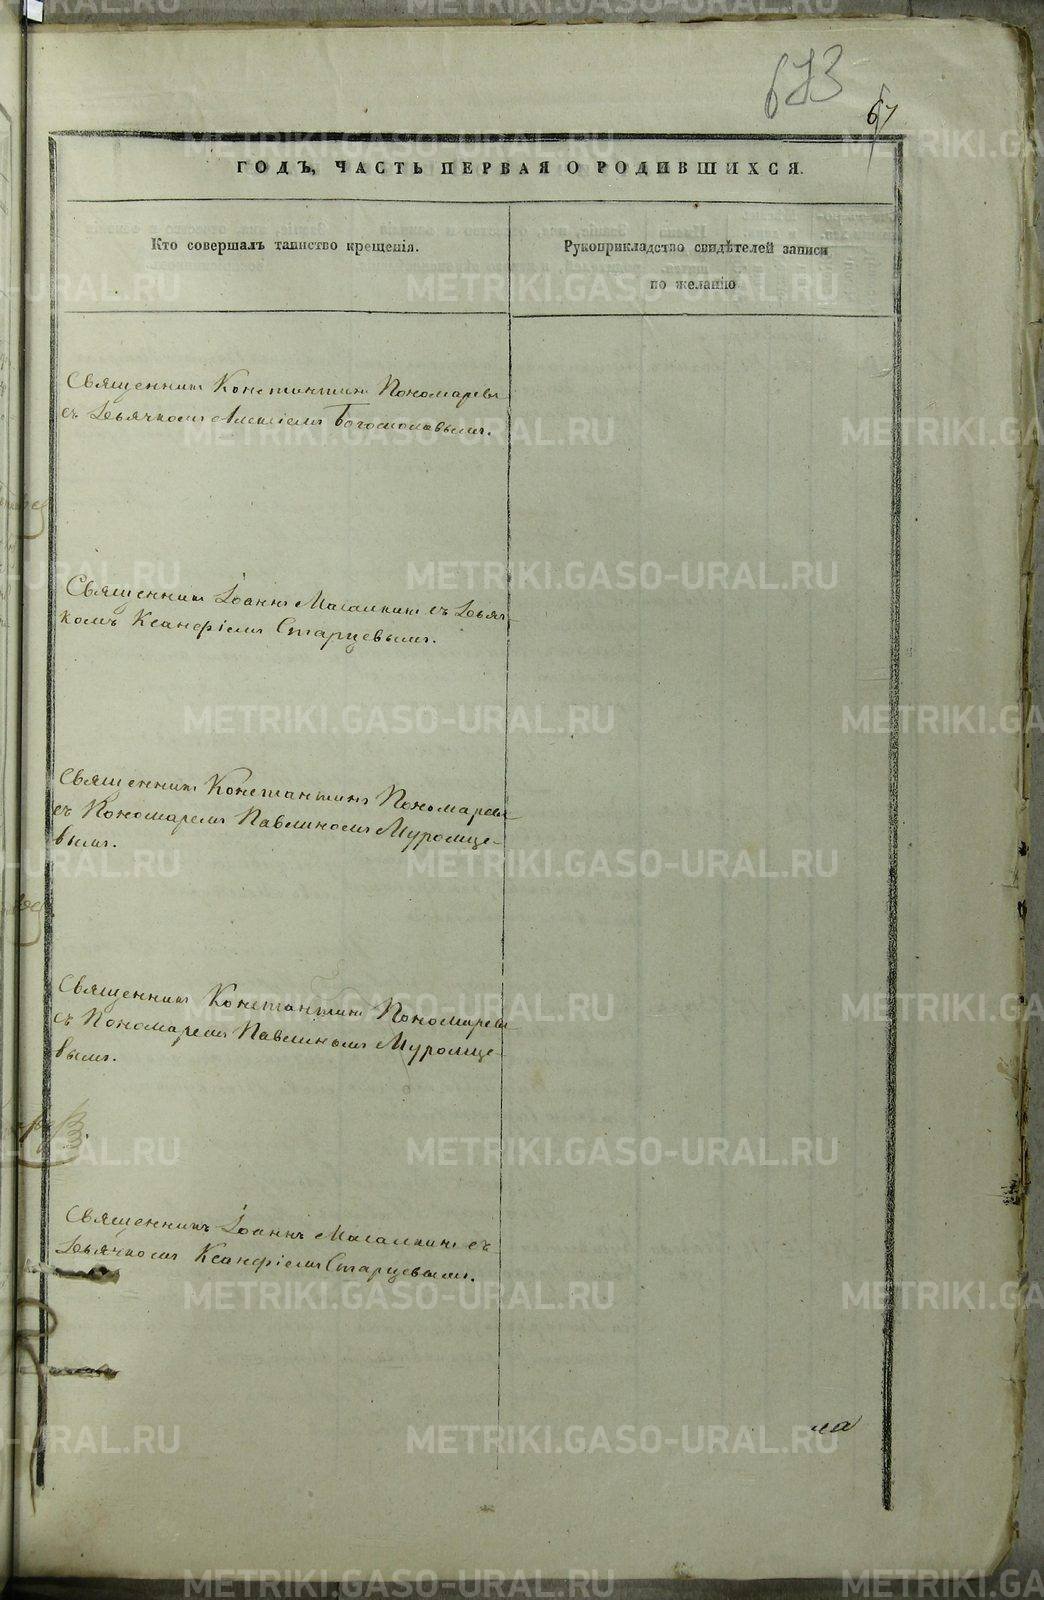 673
67
ГОДЪ, ЧАСТЬ ПЕРВАЯ О РОДИВШИХСЯ.
Кто совершалъ таинство крещенія.
Рукоприкладство свидѣтелей записи
по желанію
Священникъ Константинъ Пономаревъ
съ Дьячкомъ Алексіемъ Богословымъ.
Священникъ Іоаннъ Магалкинъ съ Дьяч-
комъ Ксанфіемъ Старцевымъ.
Священникъ Константинъ Пономаревъ
съ Пономаремъ Павлиномъ Муромце-
вымъ.
Священникъ Константинъ Пономаревъ
съ Пономаремъ Павлиномъ Муромце-
вымъ.
Священникъ Іоаннъ Магалкинъ съ
Дьячкомъ Ксанфіемъ Старцевымъ.
METRIKI.GASO-URAL.RU